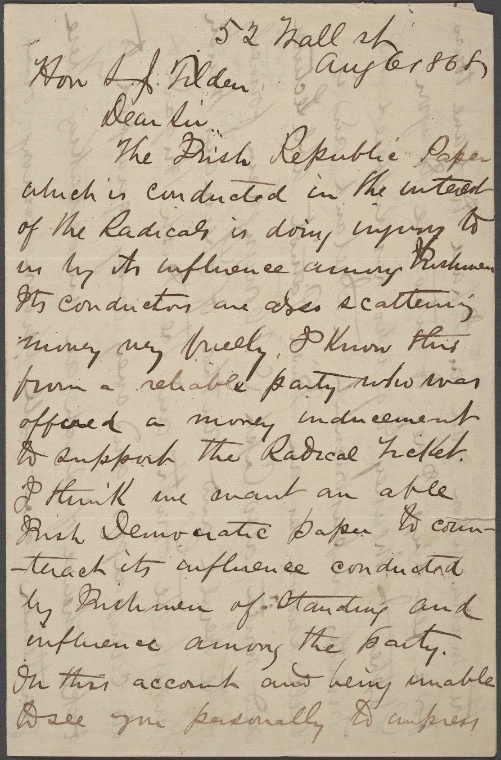 52 Wall st
Aug 6 1868
Hon S J. Tilden
Dear Sir
The Irish Republic Paper
which is conducted in the interest
of the Radicals is doing injury to
us by its influence among Irishmen
Its conductors are also scattering
money very freely. I know this
from a reliable party who was
offered a money inducement
to support the Radical Ticket.
I think we want an able
Irish Democratic paper to coun-
-teract its influence conducted
by Irishmen of standing and
influence among the party.
On this account and being unable
to see you personally to impress